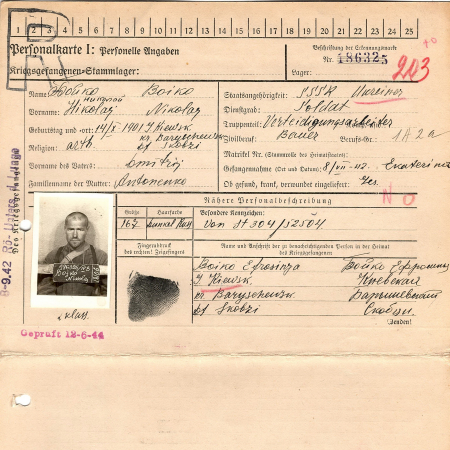 1 2 3 4 5 6 7 8 9 10 11 12 13 14 15 16 17 18 19 20 21 22 23 24 25
Personalkarte I: Personelle Angaben
Kriegsgefangenen-Stammlager:
Beschriftung der Erkennungsmarke
Nr. 186325
Lager:
Name: Бойко Boiko
Vorname: Николай Nikolaj
Geburtstag und -ort: Kiewsk
kr Baryschewsk
Religion: orth. df Skobzi
Vorname des Vaters: Dmitrij
Familienname der Mutter: Antonenko
Staatsangehörigkeit: SSSR Ukrainer
Dienstgrad: Soldat
Truppenteil: Verteidigungsarbeiter
Zivilberuf: Bauer Berufs-Gr.: 1A2a
Matrikel Nr. (Stammrolle des Heimatstaates):
Gefangennahme (Ort und Datum): 8/VII-42. Ekaterina
Ob gesund, krank, verwundet eingeliefert: Ges.
NO
8-9.42 Rö-
Des Kriegsgefangenen
Nähere Personalbeschreibung
Größe Haarfarbe Besondere Kennzeichen:
167 Von St 304/52504
Fingerabdruck
des rechten! Zeigefingers
Name und Anschrift der zu benachrichtigenden Person in der Heimat
des Kriegsgefangenen
Boiko Efrosinza Бойко
g Kiewsk Киевская
kr Baryschewsk
df Skobzi
(Wenden!)
Boiko
Geprüft 12-6-44